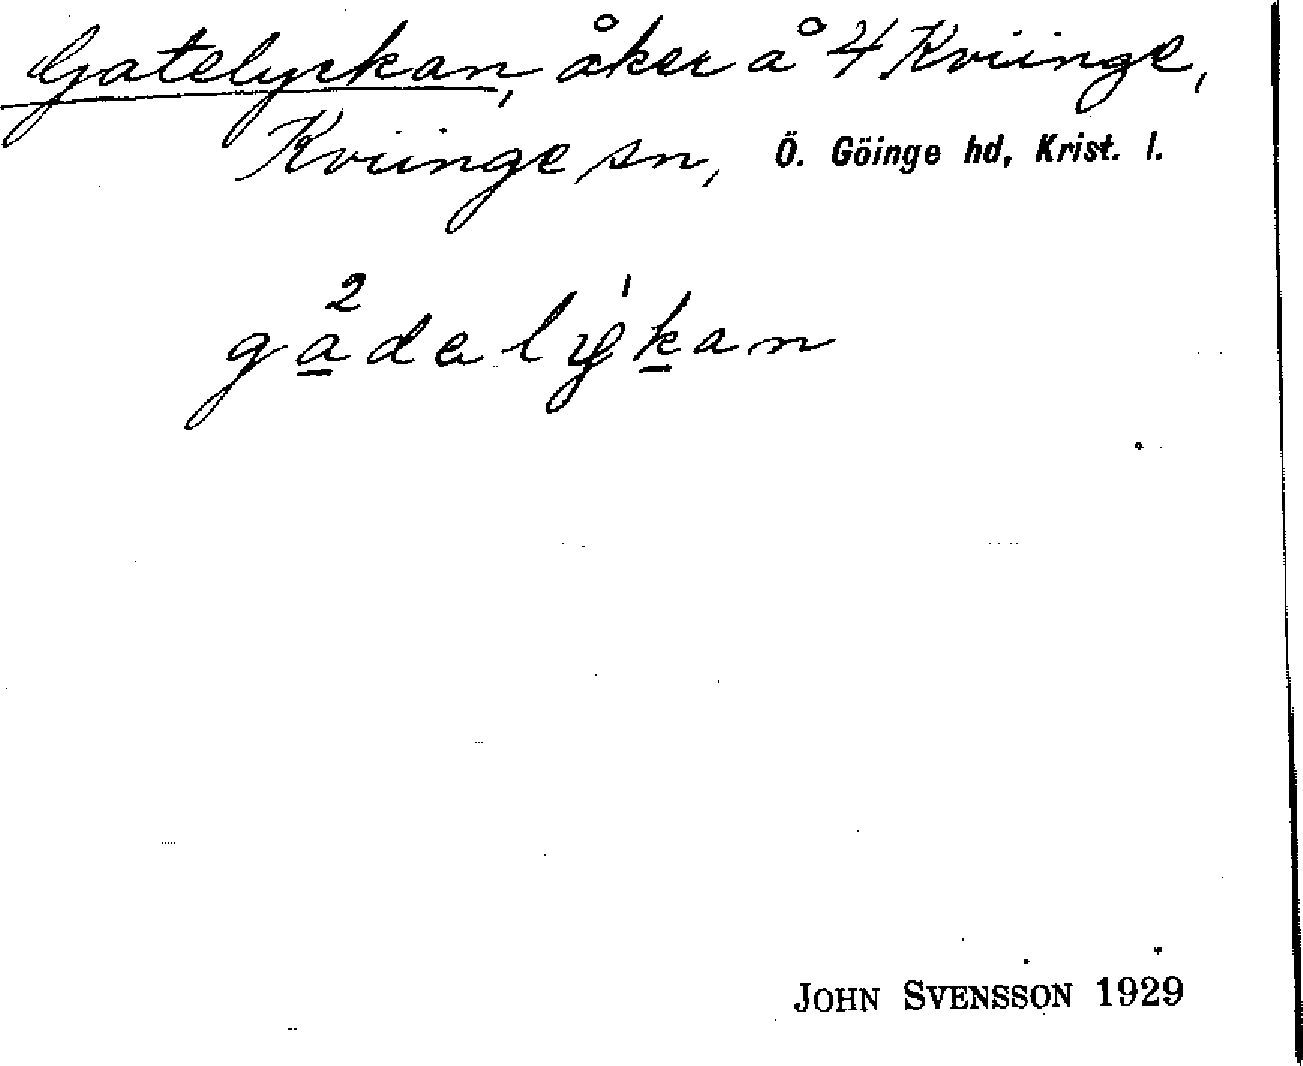 Gatelyckan, åker å 4 Kviinge,
Kviinge sn, Ö. Göinge hd, Krist. l.
gadalykan
JOHN SVENSSON 1929